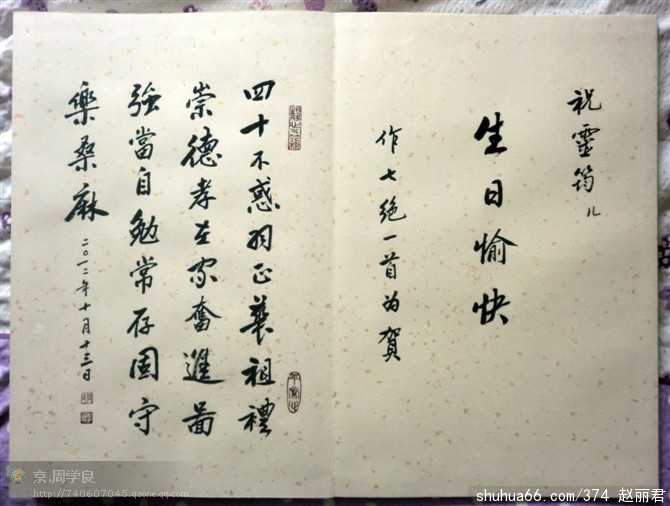 祝靈筠儿
生日愉快
作七絕一首为賀
四十不惑羽正華祖禮
崇德孝在家奮進啚
強當自勉常存固守
樂桑麻
二〇一二年十月十三日
京.周学良
http://740607045.qzone.qq.com
shuhua66.com/374 赵丽君